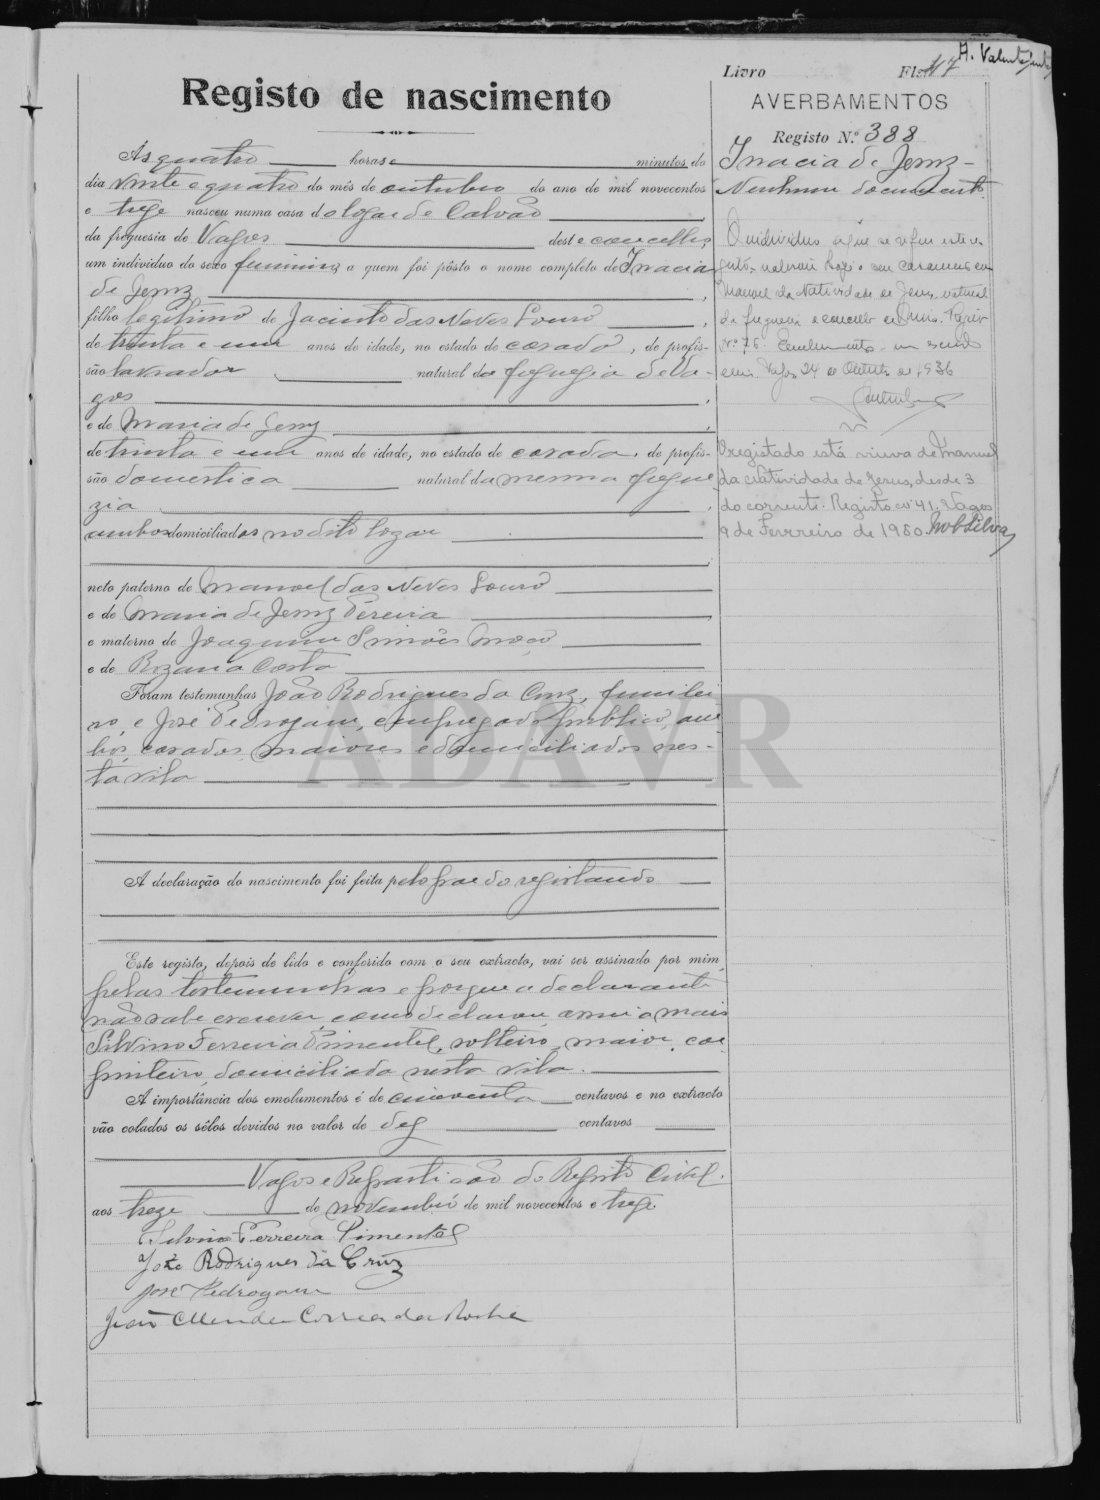 A. Valente
Livro Fls. 47
Registo de nascimento
AVERBAMENTOS
Registo N.º 388
Inacia de Jesuz -
Nenhum documento
Ás quatro horas e minutos do
dia vinte e quatro do mês de outubro do ano de mil novecentos
e treze nasceu numa casa do logar de Calvão
da freguesia de Vagos deste concelho,
um individuo do sexo feminino a quem foi pôsto o nome completo de Inacia
de Jesuz,
filho legitimo de Jacinto das Neves Louro,
de trinta e um anos de idade, no estado de casado, de profis-
são lavrador natural da freguezia de Va-
gos,
e de Maria de Jesuz,
de trinta e um anos de idade, no estado de casada, de profis-
são domestica natural da mesma fregue-
zia,
ambos domiciliados no dito logar
neto paterno de Manoel das Neves Louro
e de Maria de Jesuz Pereira
e materno de Joaquim Simões Moço
e de Rozaria Costa
Foram testemunhas João Rodrigues da Cruz, funilei
ro, e José Pedrogam, empregado publico, am
bos casados maiores e domiciliados nes-
ta vila
A declaração do nascimento foi feita pelo pae do registando
Este registo, depois de lido e conferido com o seu extracto, vai ser assinado por mim,
pelas testemunhas e porque o declarante
não sabe escrever, como declarou, assina mais
Silvino Ferreira Pimentel, solteiro, maior, car
pinteiro, domiciliado nesta vila.
A importância dos emolumentos é de cincoenta centavos e no extracto
vão colados os sêlos devidos no valor de dez centavos
Vagos e Repartição do Registo Civil.
aos treze de novembro de mil novecentos e treze.
Silvino Ferreira Pimentel
João Rodrigues da Cruz
José Pedrogam
João Mendes Correia da Rocha
O individuo a que se refere este re
gisto, celebrou hoje o seu casamento com
Manuel da Natividade de Jesus, natural
da freguesia e concelho de Mira. Registo
N.º 76
Vagos 24 de Outubro de 1936
O registado está viuva de Manuel
da Natividade de Jesus, desde 3
do corrente. Registo nº 41. Vagos
9 de Fevereiro de 1980.
ADAVR